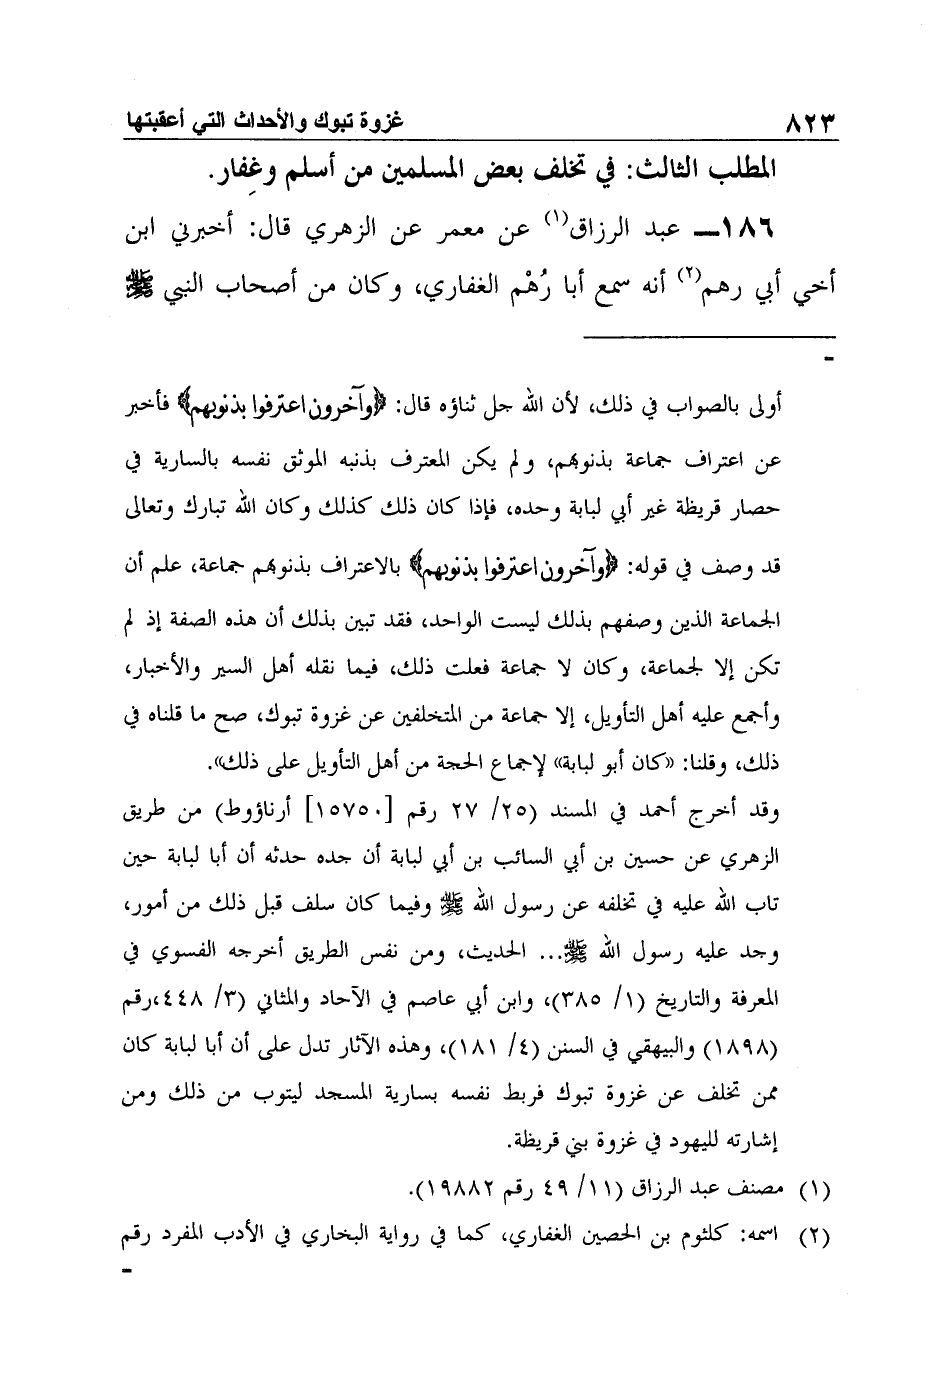 ٨٢٣ غزوة تبوك والأحداث التي أعقبتها
المطلب الثالث: في تخلف بعض المسلمين من أسلم وغِفار.
١٨٦ــ عبد الرزاق(١) عن معمر عن الزهري قال: أخبرني ابن
أخي أبي رهم(٢) أنه سمع أبا رُهْم الغفاري، وكان من أصحاب النبي ﷺ
أولى بالصواب في ذلك، لأن الله جل ثناؤه قال: ﴿وآخرون اعترفوا بذنوبهم﴾ فأخبر
عن اعتراف جماعة بذنوبهم، ولم يكن المعترف بذنبه الموثق نفسه بالسارية في
حصار قريظة غير أبي لبابة وحده، فإذا كان ذلك كذلك وكان الله تبارك وتعالى
قد وصف في قوله: ﴿وآخرون اعترفوا بذنوبهم﴾ بالاعتراف بذنوبهم جماعة، علم أن
الجماعة الذين وصفهم بذلك ليست الواحد، فقد تبين بذلك أن هذه الصفة إذ لم
تكن إلا لجماعة، وكان لا جماعة فعلت ذلك، فيما نقله أهل السير والأخبار،
وأجمع عليه أهل التأويل، إلا جماعة من المتخلفين عن غزوة تبوك، صح ما قلناه في
ذلك، وقلنا: «كان أبو لبابة» لإجماع الحجة من أهل التأويل على ذلك».
وقد أخرج أحمد في المسند (٢٥/ ٢٧ رقم [١٥٧٥٠] أرناؤوط) من طريق
الزهري عن حسين بن أبي السائب بن أبي لبابة أن جده حدثه أن أبا لبابة حين
تاب الله عليه في تخلفه عن رسول الله ﷺ وفيما كان سلف قبل ذلك من أمور،
وجد عليه رسول الله ﷺ... الحديث، ومن نفس الطريق أخرجه الفسوي في
المعرفة والتاريخ (١/ ٣٨٥)، وابن أبي عاصم في الآحاد والمثاني (٣/ ٤٤٨،رقم
(١٨٩٨) والبيهقي في السنن (٤/ ١٨١)، وهذه الآثار تدل على أن أبا لبابة كان
ممن تخلف عن غزوة تبوك فربط نفسه بسارية المسجد ليتوب من ذلك ومن
إشارته لليهود في غزوة بني قريظة.
(١) مصنف عبد الرزاق (١١/ ٤٩ رقم ١٩٨٨٢).
(٢) اسمه: كلثوم بن الحصين الغفاري، كما في رواية البخاري في الأدب المفرد رقم